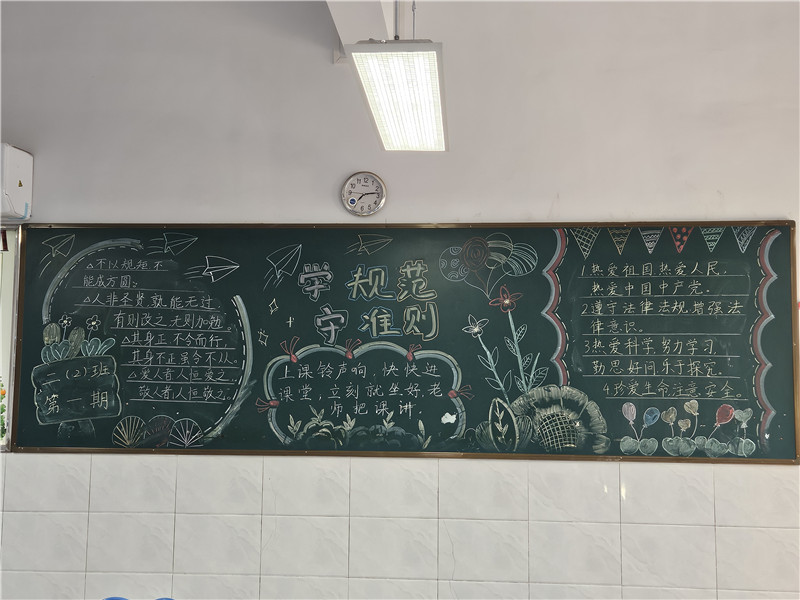 △不以规矩不
能成方圆。
△人非圣贤孰能无过
有则改之无则加勉。
△其身正不令而行,
其身不正虽令不从。
△爱人者人恒爱之.
敬人者人恒敬之。
二(2)班
第一期
学规范
守准则
上课铃声响,快快进
课堂,立刻就坐好,老
师把课讲.
1热爱祖国热爱人民.
热爱中国中产党.
2遵守法律法规增强法
律意识.
3热爱科学努力学习
勤思好问乐于探究.
4珍爱生命注意安全.